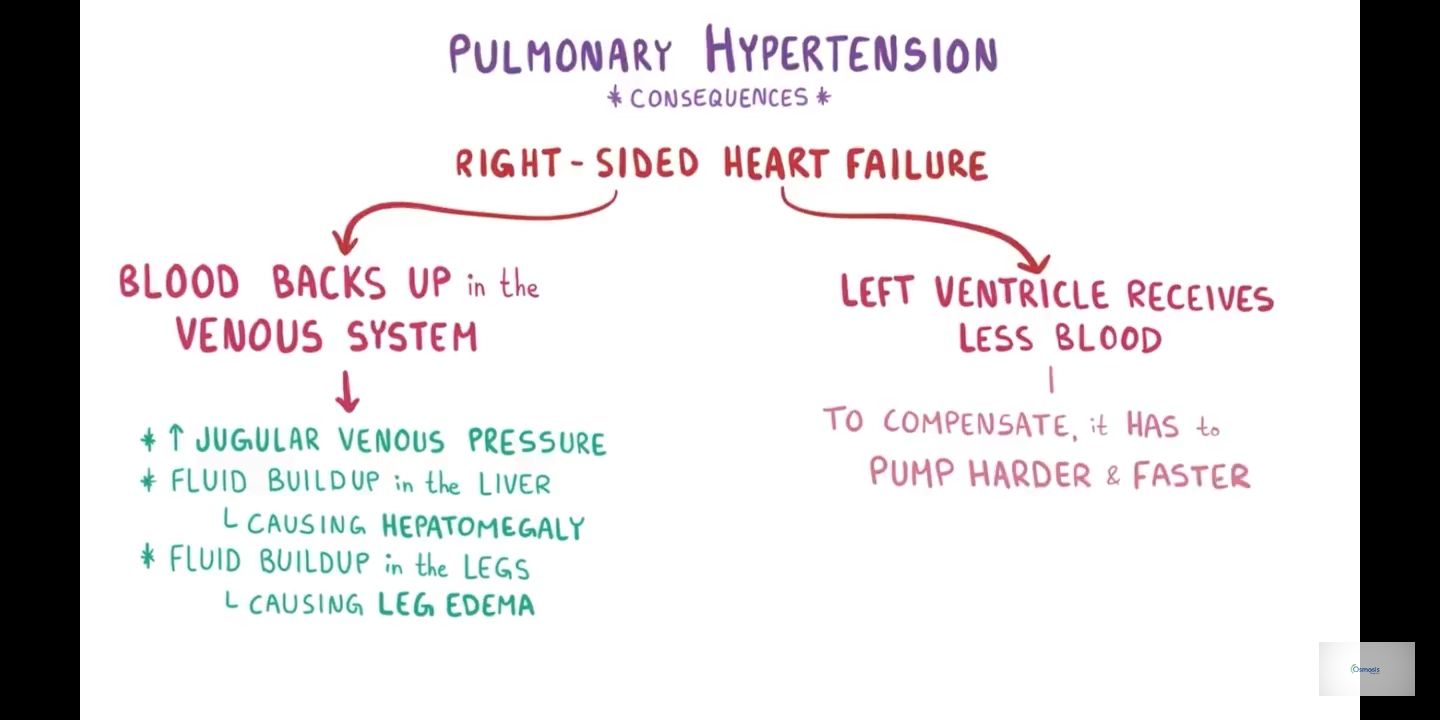 PULMONARY HYPERTENSION
* CONSEQUENCES *
RIGHT-SIDED HEART FAILURE
BLOOD BACKS UP in the
VENOUS SYSTEM
* ↑ JUGULAR VENOUS PRESSURE
* FLUID BUILDUP in the LIVER
└ CAUSING HEPATOMEGALY
* FLUID BUILDUP in the LEGS
└ CAUSING LEG EDEMA
LEFT VENTRICLE RECEIVES
LESS BLOOD
TO COMPENSATE, it HAS to
PUMP HARDER & FASTER
Osmosis